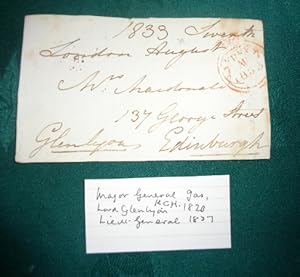 1833 Seventh
London August
Mrs Macdonald
137 George Street
Glenlyon Edinburgh
Major General Gas,
Lord Glenlyon K.C.H. 1820
Lieut-General 1837